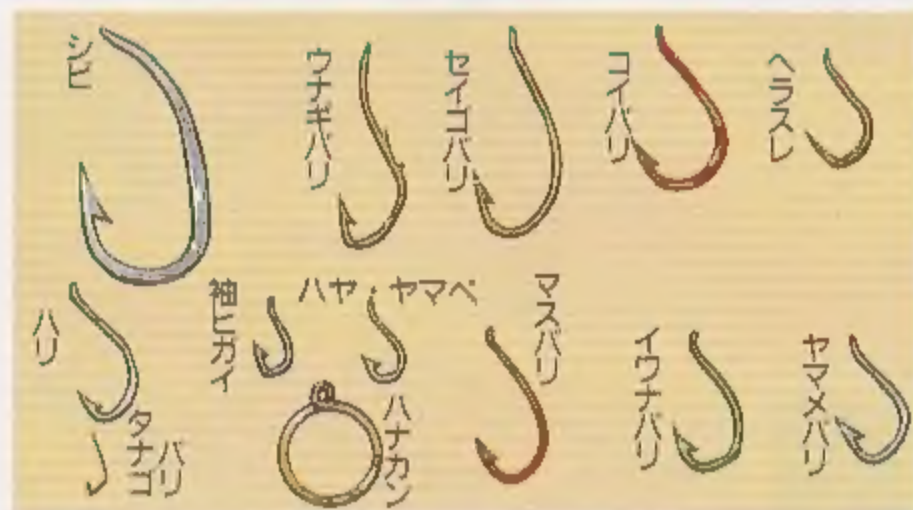 シビ
ウナギバリ
セイゴバリ
コイバリ
ヘラスレ
ハリ
タナゴ
バリ
袖ヒガイ
ハヤ
ヤマベ
ハナカン
マスバリ
イワナバリ
ヤマメバリ